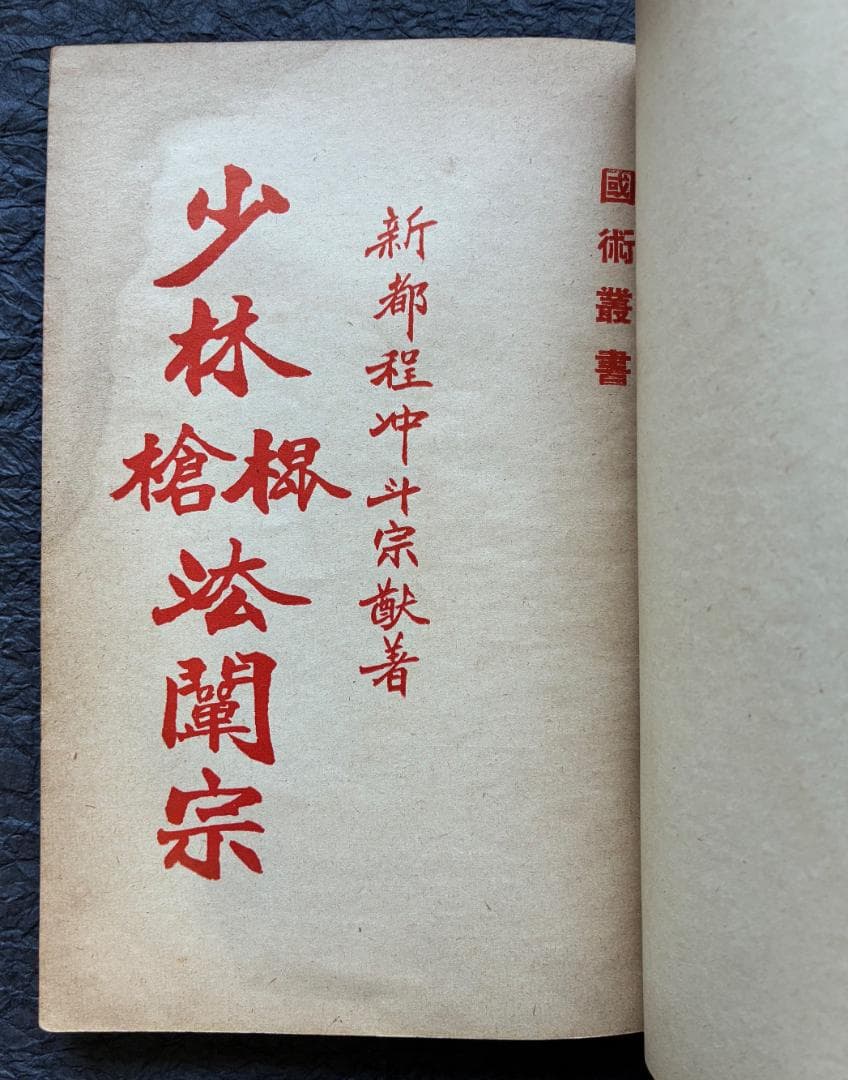 國術叢書
新都程冲斗宗猷著
少林棍槍法闡宗